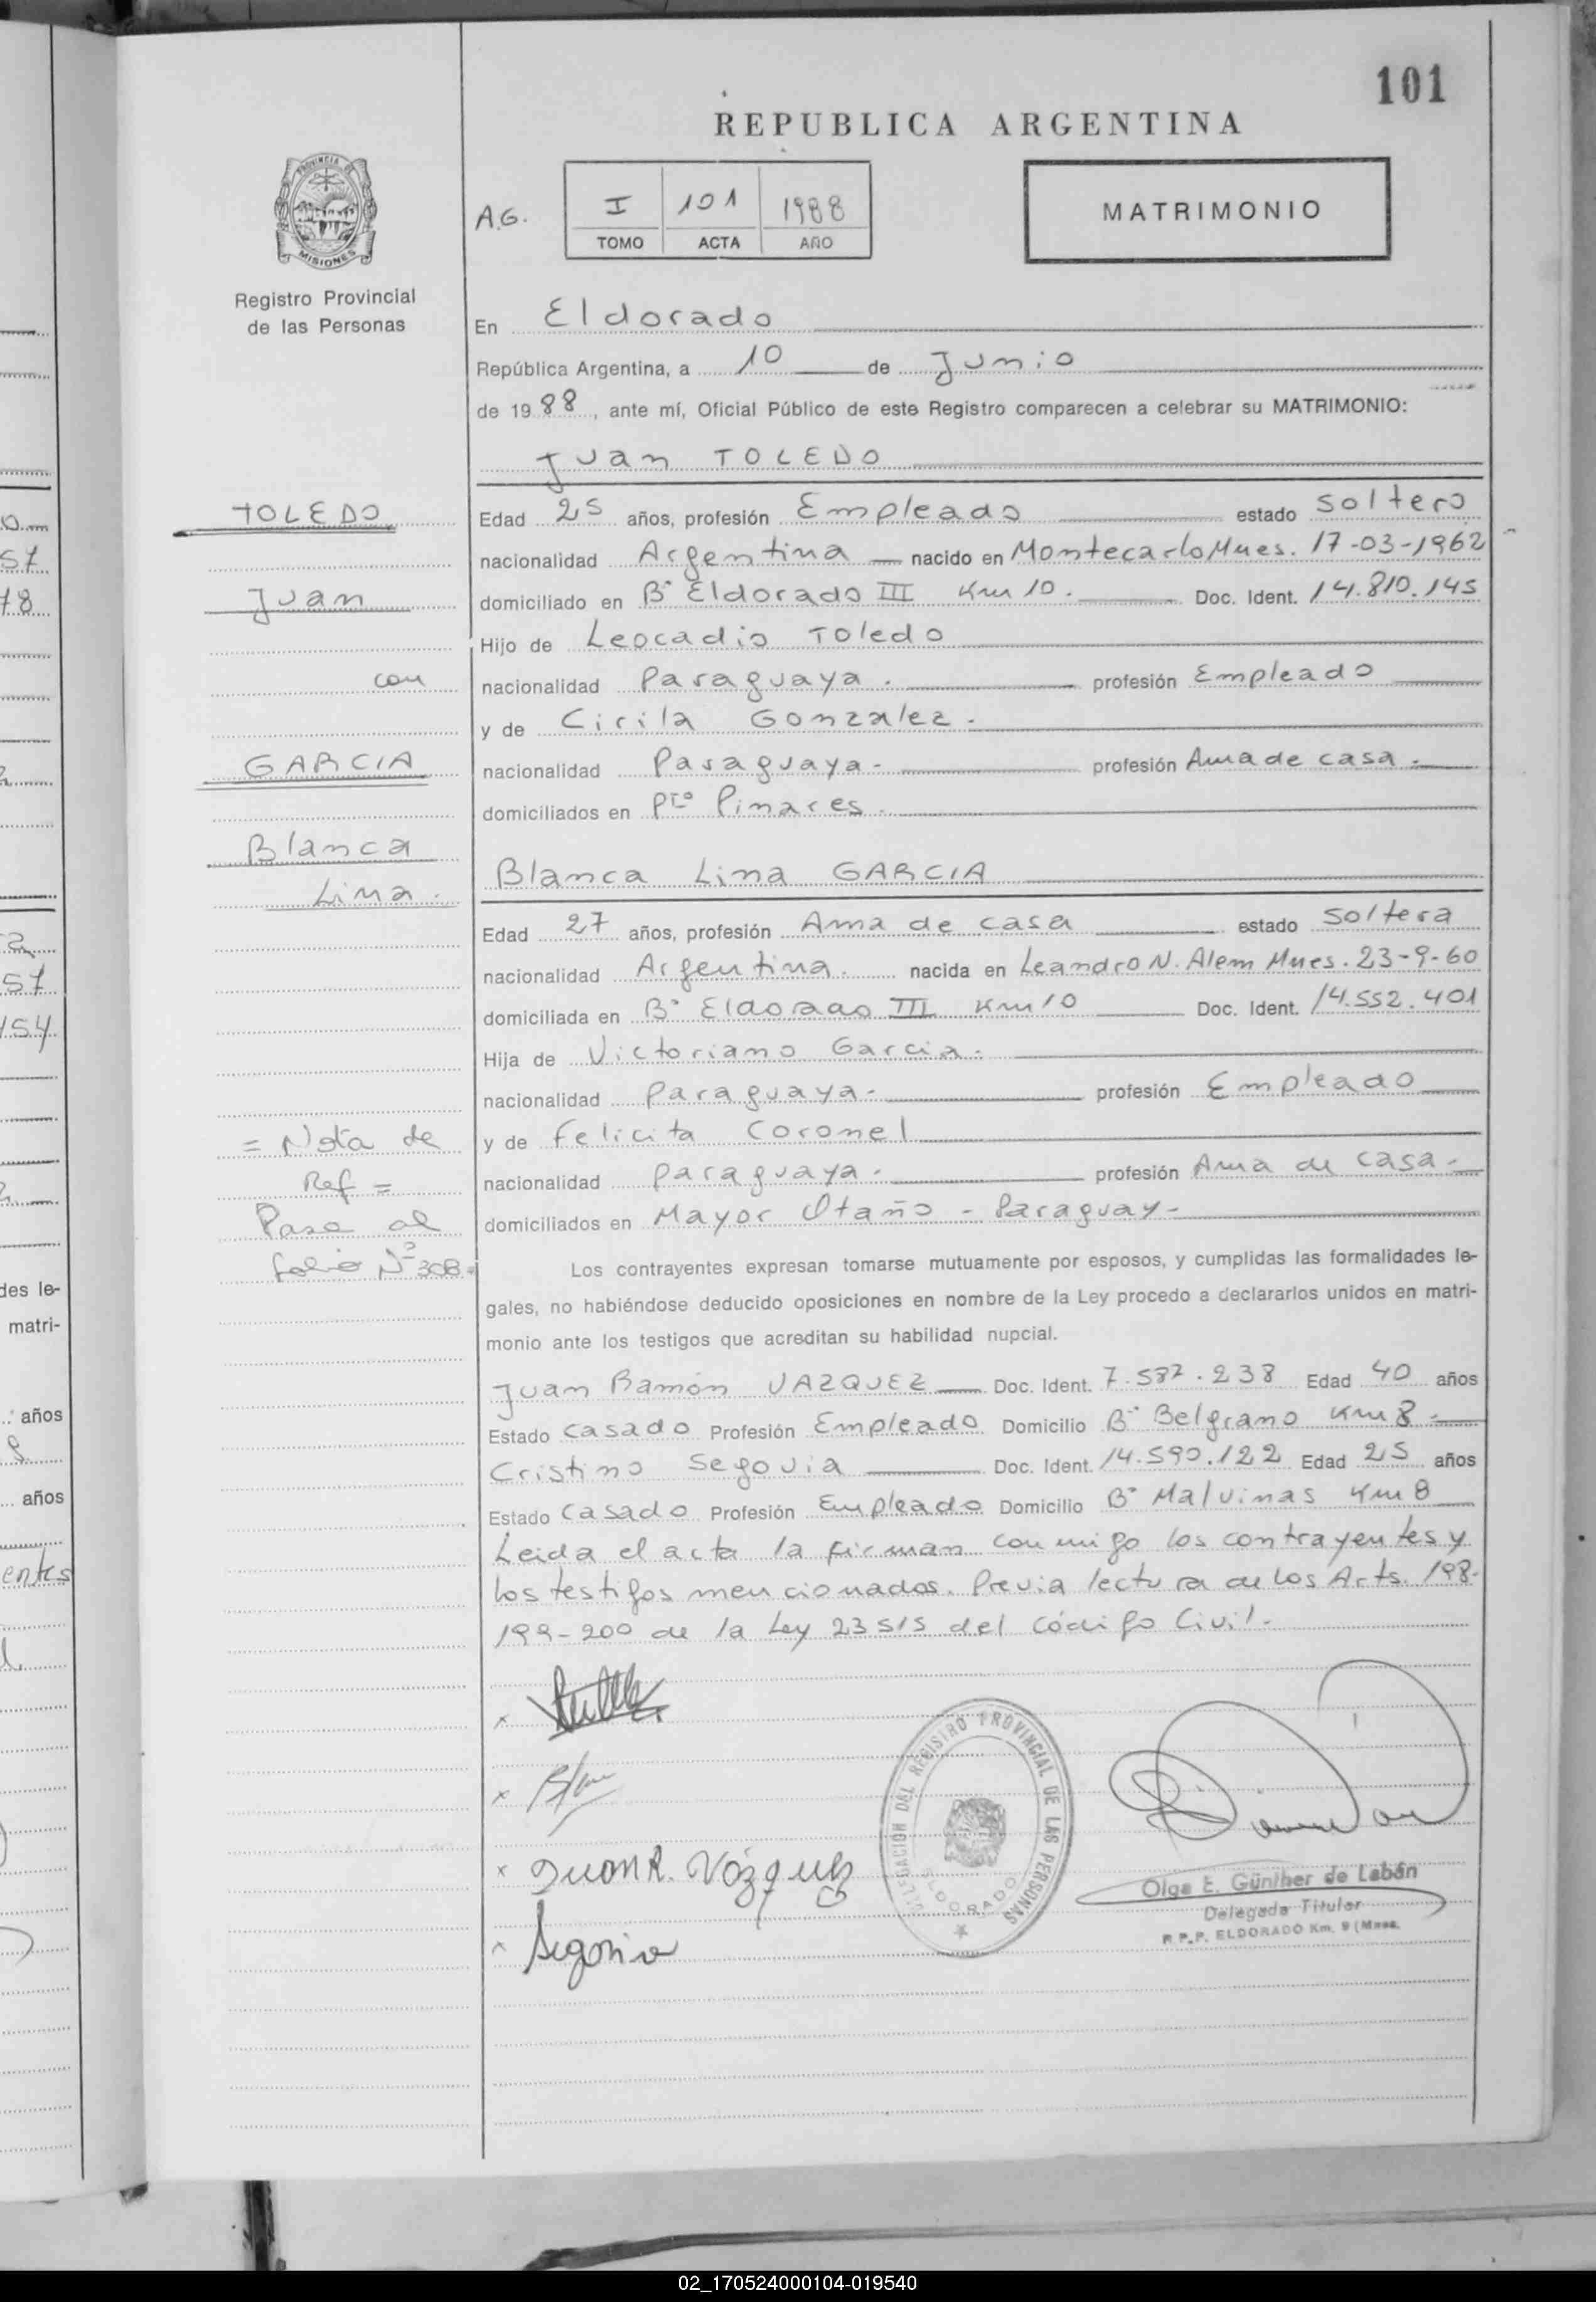 101
REPUBLICA ARGENTINA
PROVINCIA DE
MISIONES
Registro Provincial
de las Personas
A.G.
I 101 1988
TOMO ACTA AÑO
MATRIMONIO
En Eldorado
República Argentina, a 10 de Junio
de 1988, ante mí, Oficial Público de este Registro comparecen a celebrar su MATRIMONIO:
Juan TOLEDO
Edad 25 años, profesión Empleado estado soltero
nacionalidad Argentina nacido en Montecarlo Mnes. 17-03-1962
domiciliado en B° Eldorado III Km 10. Doc. Ident. 14.810.145
Hijo de Leocadio Toledo
nacionalidad Paraguaya. profesión Empleado
y de Cirila Gonzalez.
nacionalidad Paraguaya- profesión Ama de casa.
domiciliados en Pto Pinares.
Blanca Lina GARCIA
Edad 27 años, profesión Ama de casa estado soltera
nacionalidad Argentina. nacida en Leandro N. Alem Mnes. 23-9-60
domiciliada en B° Eldorado III Km 10 Doc. Ident. 14.552.401
Hija de Victoriano Garcia.
nacionalidad Paraguaya- profesión Empleado
y de Felicita Coronel
nacionalidad Paraguaya. profesión Ama de casa-
domiciliados en Mayor Otaño - Paraguay-
Los contrayentes expresan tomarse mutuamente por esposos, y cumplidas las formalidades le-
gales, no habiéndose deducido oposiciones en nombre de la Ley procedo a declararlos unidos en matri-
monio ante los testigos que acreditan su habilidad nupcial.
Juan Ramón VAZQUEZ Doc. Ident. 7.587.238 Edad 40 años
Estado Casado Profesión Empleado Domicilio B° Belgrano Km 8.
Cristino Segovia Doc. Ident. 14.590.122 Edad 25 años
Estado Casado Profesión Empleado Domicilio B° Malvinas Km 8
Leida el acta la firman conmigo los contrayentes y
los testigos mencionados. Previa lectura de los Arts. 198-
199-200 de la Ley 23515 del Código Civil.
TOLEDO
Juan
con
GARCIA
Blanca
Lina.
= Nota de
Ref =
Pasa al
folio N° 308.
x
x Blan
x Juan R. Vázquez
x Segovia
DELEGACIÓN DEL REGISTRO PROVINCIAL DE LAS PERSONAS
ELDORADO
Olga E. Günther de Labán
Delegada Titular
R.P.P. ELDORADO Km. 9 (Mnes.
57
78
57
154
des le-
matri-
años
años
entes
02_170524000104-019540